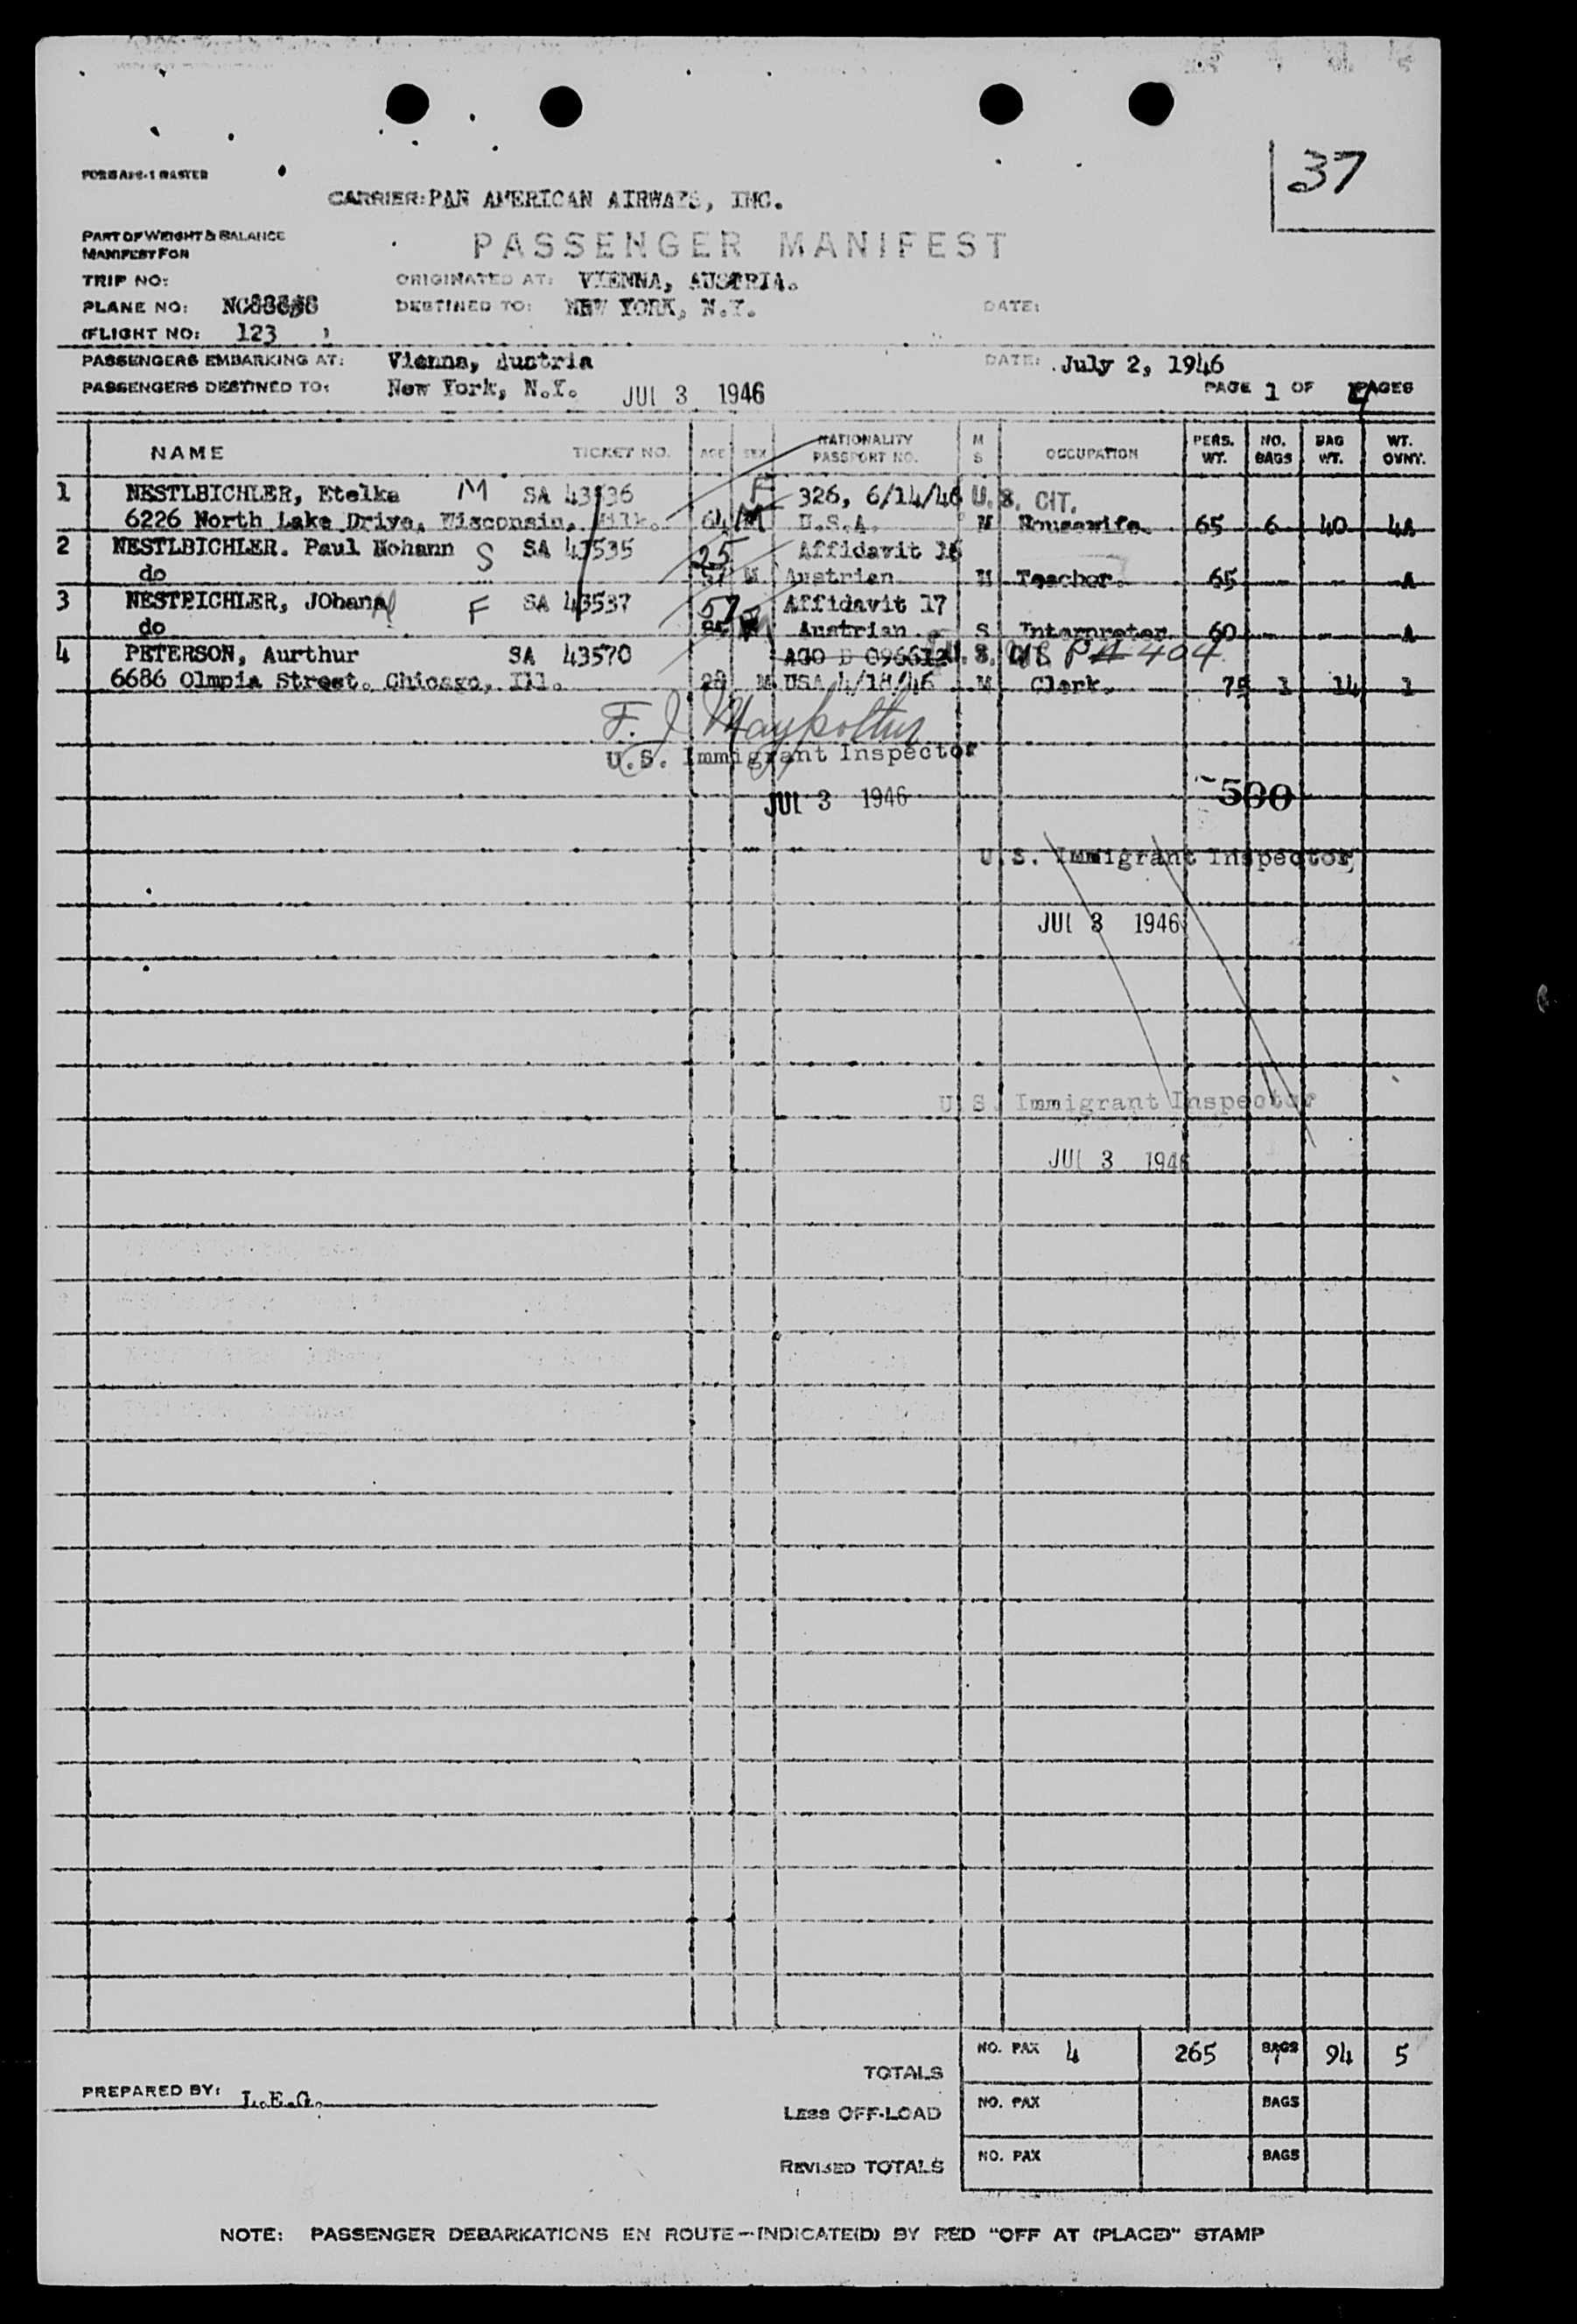 37
FORM AFS-1 MASTER
CARRIER: PAN AMERICAN AIRWAYS, INC.
PART OF WEIGHT & BALANCE
MANIFEST FOR
PASSENGER MANIFEST
TRIP NO:
ORIGINATED AT: VIENNA, AUSTRIA.
PLANE NO:
DESTINED TO: NEW YORK, N.Y.
DATE:
(FLIGHT NO: 123 )
PASSENGERS EMBARKING AT: Vienna, Austria
DATE: July 2, 1946
PASSENGERS DESTINED TO: New York, N.Y. JUL 3 1946
PAGE 1 OF PAGES
NAME TICKET NO. AGE SEX NATIONALITY PASSPORT NO. M S OCCUPATION PERS. WT. NO. BAGS BAG WT. WT. OVNT.
1 NESTLBICHLER, Etelka M SA 43536 F 326, 6/14/46 U.S. CIT.
6226 North Lake Drive, Wisconsin, Milk. 64 M U.S.A. M Housewife. 65 6 40 4A
2 NESTLBICHLER. Paul Nohann S SA 43535 25 Affidavit 16
do M Austrian M Teacher. 65 A
3 NESTPICHLER, JOhana F SA 43537 57 Affidavit 17
do Austrian. S Interpreter 60 A
4 PETERSON, Aurthur SA 43570 AGO D 096612 U.S. 404
6686 Olmpia Street. Chicago, Ill. 28 M USA 4/18/46 M Clerk. 75 1 14 1
F. J.
U.S. Immigrant Inspector
JUL 3 1946
500
U.S. Immigrant Inspector
JUL 3 1946
U.S. Immigrant Inspector
JUL 3 1946
TOTALS NO. PAX 4 265 BAGS 7 94 5
PREPARED BY: L.E.G.
LESS OFF-LOAD NO. PAX BAGS
REVISED TOTALS NO. PAX BAGS
NOTE: PASSENGER DEBARKATIONS EN ROUTE—INDICATE(D) BY RED "OFF AT (PLACE)" STAMP